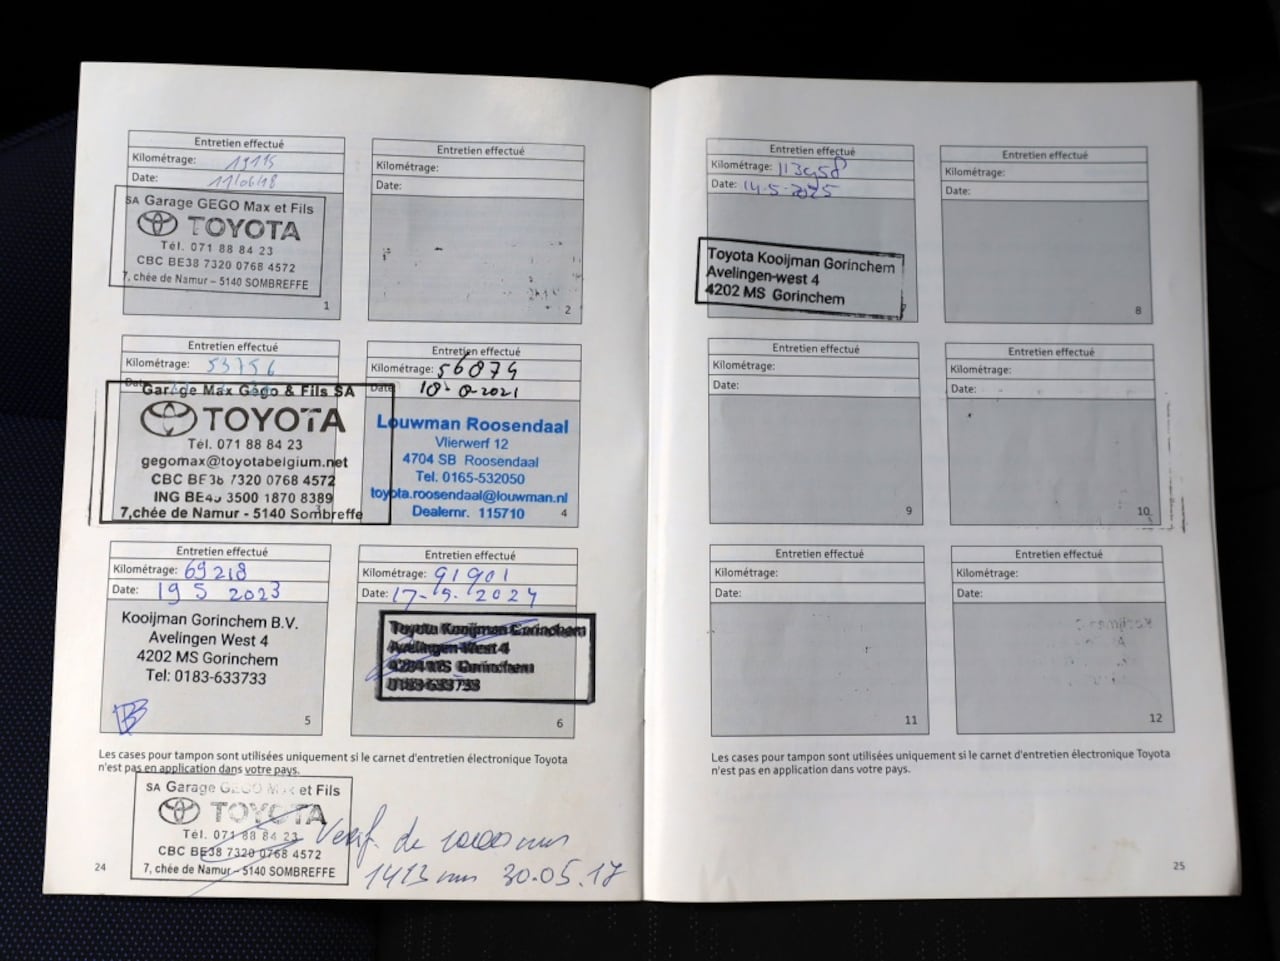 Entretien effectué
Kilométrage: 19115
Date: 11/06/18
SA Garage GEGO Max et Fils
TOYOTA
Tél. 071 88 84 23
CBC BE38 7320 0768 4572
7, chée de Namur – 5140 SOMBREFFE
1
Entretien effectué
Kilométrage:
Date:
2
Entretien effectué
Kilométrage: 53756
Date:
Garage Max Gego & Fils SA
TOYOTA
Tél. 071 88 84 23
gegomax@toyotabelgium.net
CBC BE38 7320 0768 4572
ING BE45 3500 1870 8389
7,chée de Namur - 5140 Sombreffe
3
Entretien effectué
Kilométrage: 56874
Date: 18-8-2021
Louwman Roosendaal
Vlierwerf 12
4704 SB Roosendaal
Tel. 0165-532050
toyota.roosendaal@louwman.nl
Dealernr. 115710
4
Entretien effectué
Kilométrage: 69218
Date: 19 5 2023
Kooijman Gorinchem B.V.
Avelingen West 4
4202 MS Gorinchem
Tel: 0183-633733
5
Entretien effectué
Kilométrage: 91901
Date: 17-5-2024
Toyota Kooijman Gorinchem
Avelingen-West 4
4204 MS Gorinchem
0183-633733
6
Les cases pour tampon sont utilisées uniquement si le carnet d'entretien électronique Toyota
n'est pas en application dans votre pays.
SA Garage GEGO Max et Fils
TOYOTA
Tél. 071 88 84 23
CBC BE38 7320 0768 4572
7, chée de Namur – 5140 SOMBREFFE
Verif. de 10000 mns
1413 mns 30.05.17
24
Entretien effectué
Kilométrage: 113958
Date: 14-5-2025
Toyota Kooijman Gorinchem
Avelingen-west 4
4202 MS Gorinchem
Entretien effectué
Kilométrage:
Date:
8
Entretien effectué
Kilométrage:
Date:
9
Entretien effectué
Kilométrage:
Date:
10
Entretien effectué
Kilométrage:
Date:
11
Entretien effectué
Kilométrage:
Date:
12
Les cases pour tampon sont utilisées uniquement si le carnet d'entretien électronique Toyota
n'est pas en application dans votre pays.
25